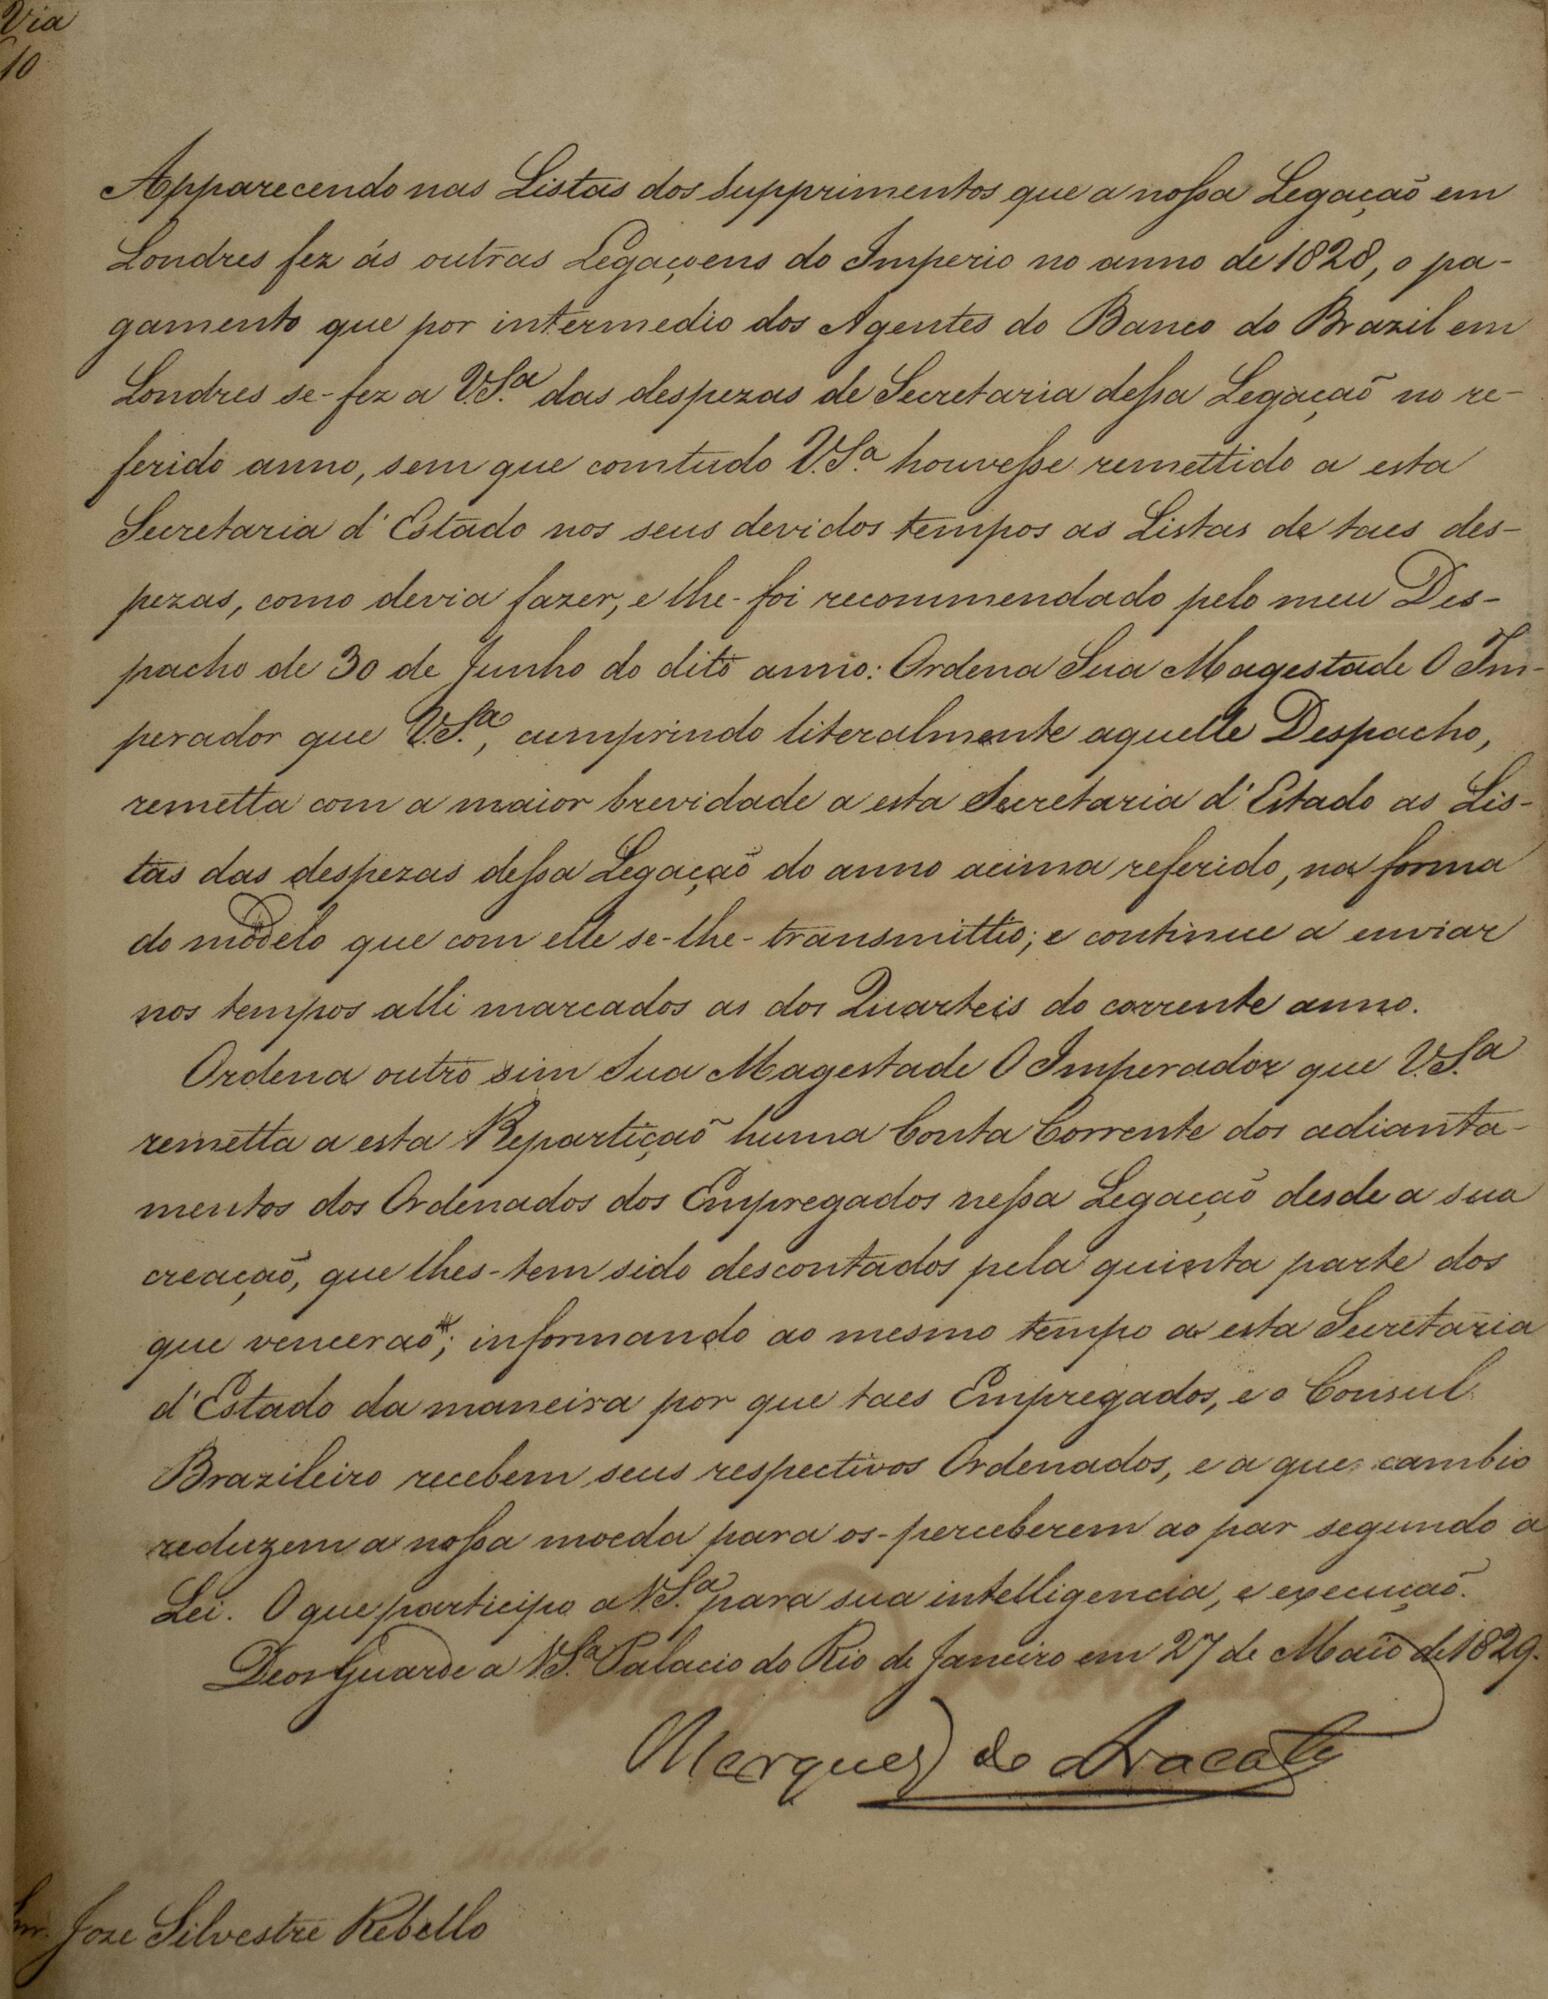 Via
10
Apparecendo nas Listas dos Supprimentos que a nossa Legação em
Londres fez ás outras Legaçoens do Imperio no anno de 1828, o pa-
gamento que por intermedio dos Agentes do Banco do Brazil em
Londres se-fez a V.S.ª das despezas de Secretaria dessa Legação no re-
ferido anno, sem que comtudo V.S.ª houvesse remettido a esta
Secretaria d'Estado nos seus devidos tempos as Listas de taes des-
pezas, como devia fazer, e lhe-foi recommendado pelo meu Des-
pacho de 30 de Junho do dito anno: Ordena Sua Magestade O Im-
perador que V.S.ª, cumprindo literalmente aquelle Despacho,
remetta com a maior brevidade a esta Secretaria d'Estado as Lis-
tas das despezas dessa Legação do anno acima referido, na forma
do modelo que com elle se-lhe-transmittio; e continue a enviar
nos tempos alli marcados as dos Quarteis do corrente anno.
Ordena outro sim Sua Magestade O Imperador que V.S.ª
remetta a esta Repartição huma Conta Corrente dos adianta-
mentos dos Ordenados dos Empregados nessa Legação desde a sua
creação, que lhes-tem sido descontados pela quinta parte dos
que vencerão; informando ao mesmo tempo a esta Secretaria
d'Estado da maneira por que taes Empregados, e o Consul
Brazileiro recebem seus respectivos Ordenados, e a que cambio
reduzem a nossa moeda para os-perceberem ao par segundo a
Lei. O que participo a V.S.ª para sua intelligencia, e execução.
Deos Guarde a V.S.ª Palacio do Rio de Janeiro em 27 de Maio de 1829.
Marquez de Aracaty
Snr. Joze Silvestre Rebello